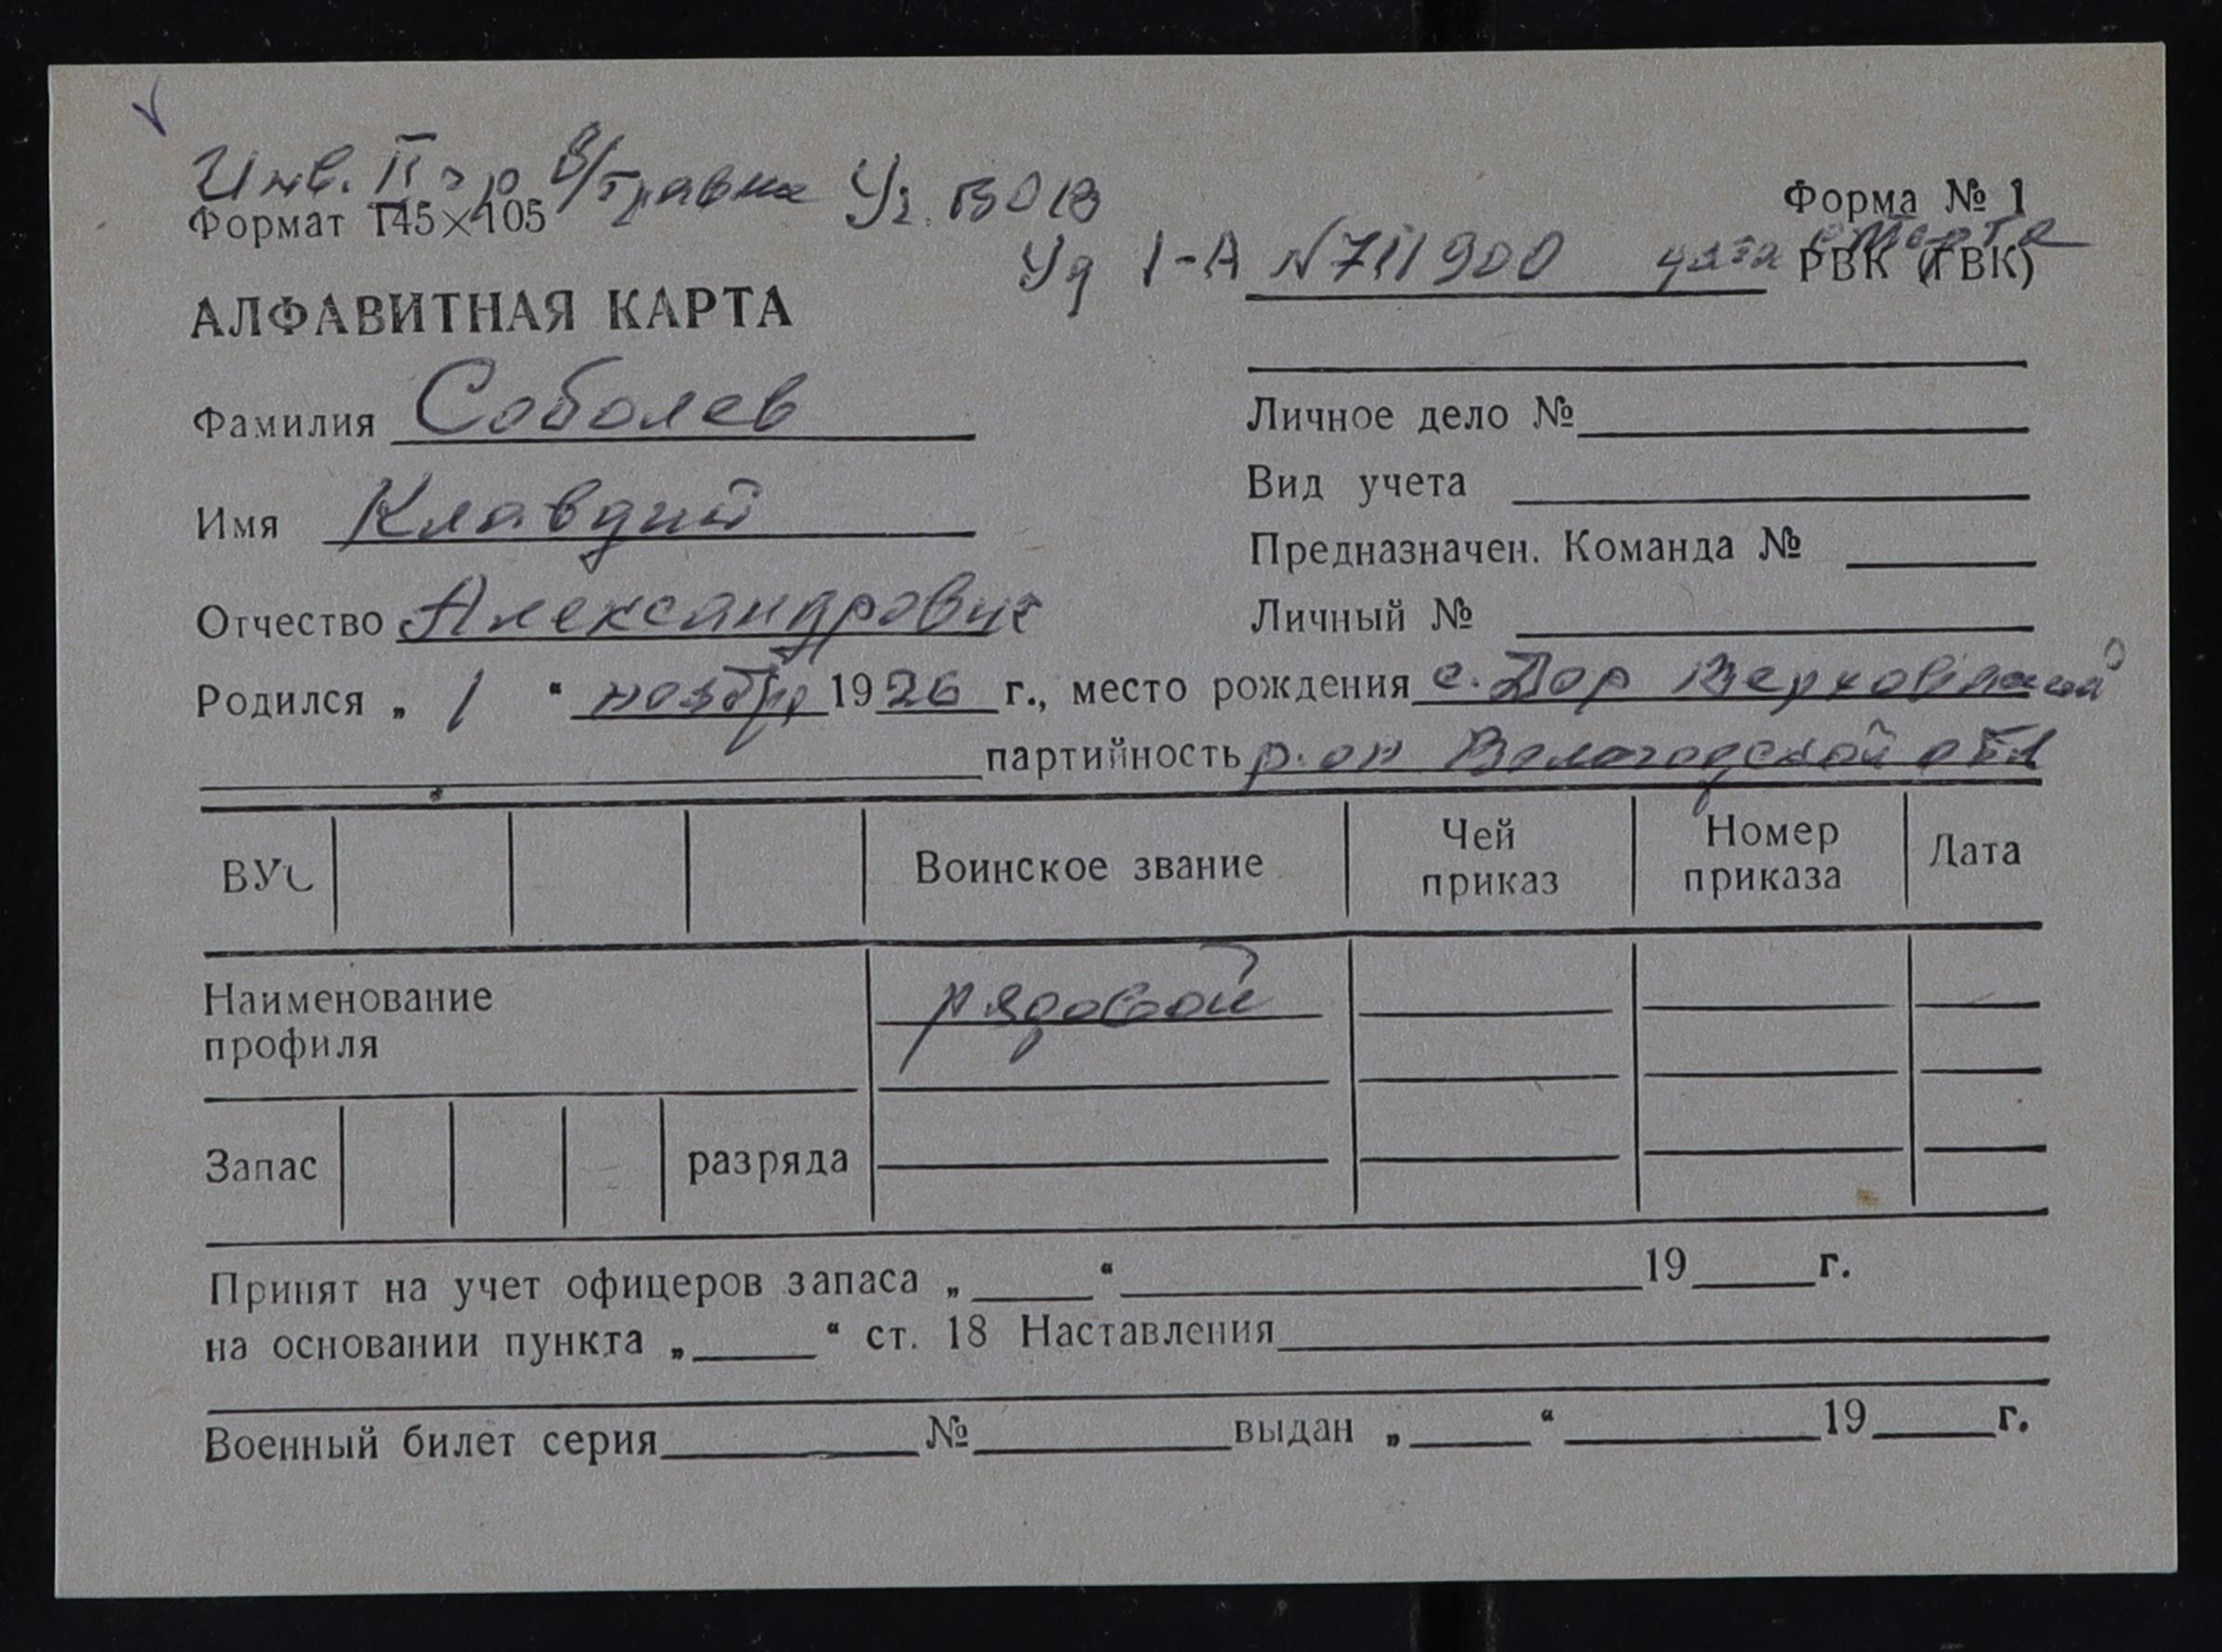 Инв. II гр в/травма Уч. ВОВ
Формат 145×105
Форма № 1
Уд 1-А №711900
РВК (ГВК)
АЛФАВИТНАЯ КАРТА
Фамилия Соболев
Личное дело №
Имя Клавдий
Вид учета
Предназначен. Команда №
Отчество Александрович
Личный №
Родился „ 1 “ ноября 1926 г., место рождения с. Дор
партийность р-он Вологодской обл
ВУС Воинское звание Чей приказ Номер приказа Дата
Наименование профиля рядовой
Запас разряда
Принят на учет офицеров запаса „ “ 19 г.
на основании пункта „ “ ст. 18 Наставления
Военный билет серия № выдан „ “ 19 г.